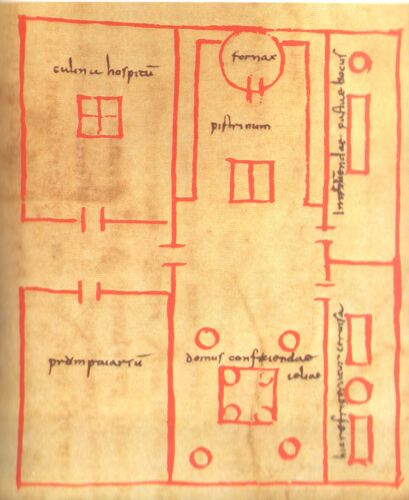 culina hospitū
fornax
pistrinum
pastae locus
promptuariū
domus conficiendae
celiae
hic refrigeratur ceruisa